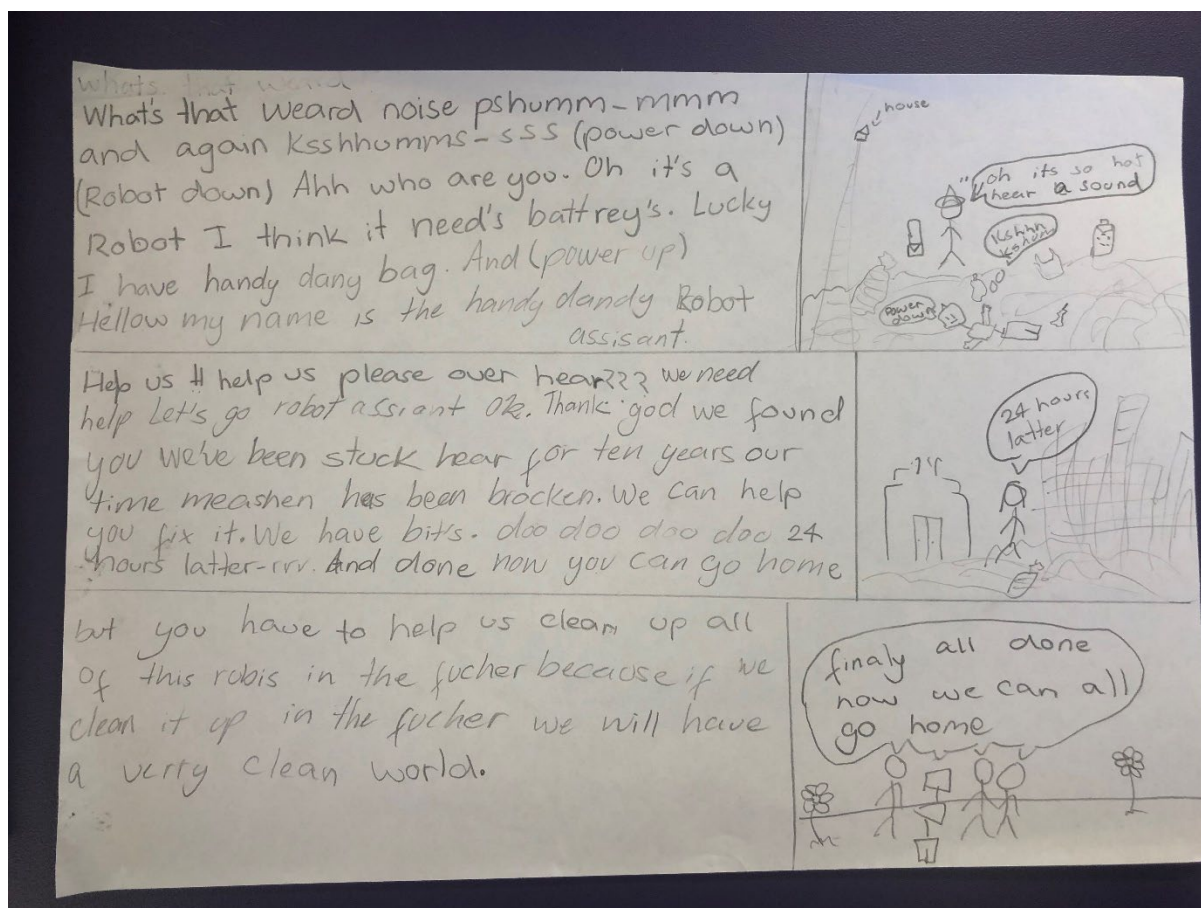 whats that weard
What's that weard noise pshumm-mmm
and again Ksshhumms-sss (power down)
(Robot down) Ahh who are you. Oh it's a
Robot I think it need's battrey's. Lucky
I have handy dany bag. And (power up)
Hellow my name is the handy dandy Robot
assisant.
house
oh its so hot
hear a sound
Kshhh
Kshum
power
down
Help us help us please over hear??? we need
help Let's go robot assiant Ok. Thank god we found
you we've been stuck hear for ten years our
time meashen has been brocken. We can help
you fix it. We have bit's. doo doo doo doo 24
hours latter-rrr. And done now you can go home
24 hours
latter
but you have to help us clean up all
of this rubis in the fucher because if we
clean it up in the fucher we will have
a verry clean world.
finaly all done
now we can all
go home